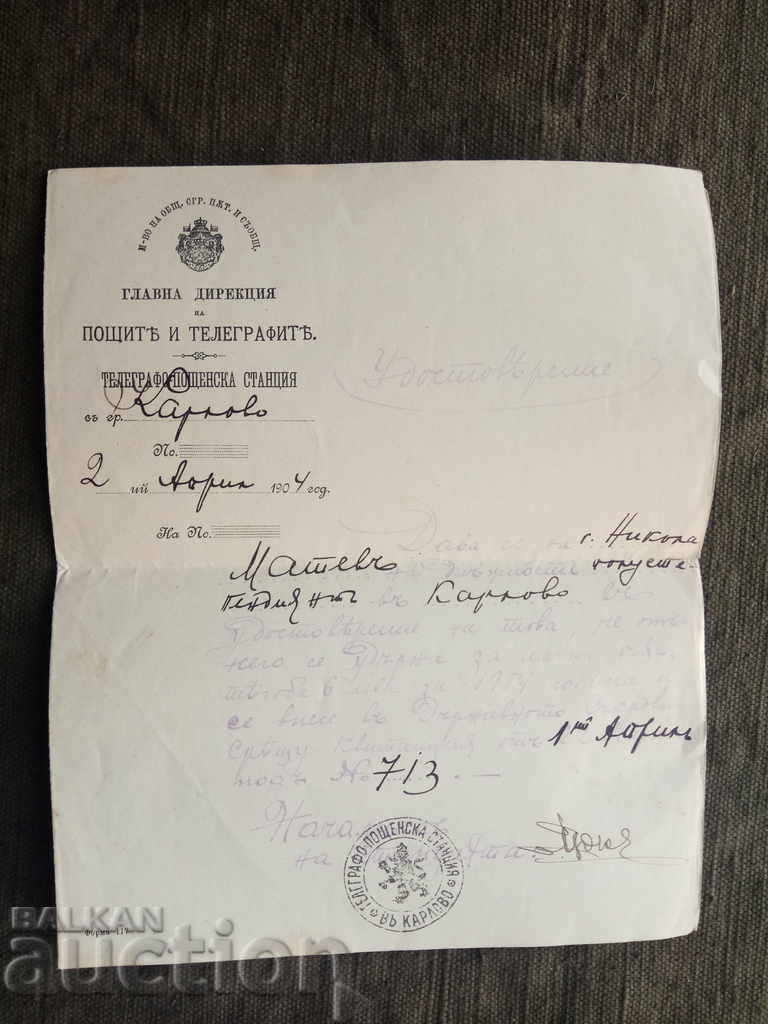 М-ВО НА ОБЩ. СГР. ПѪТ. И СЪОБЩ.
ГЛАВНА ДИРЕКЦИЯ
на
ПОЩИТѢ И ТЕЛЕГРАФИТѢ.
ТЕЛЕГРАФО-ПОЩЕНСКА СТАНЦИЯ
въ гр. Карлово
No.
2 ий Априлъ 1904 год.
На No.
Удостовѣрение
Дава се на г. Никола
Матевъ на длъжность
въ Карлово въ
Удостовѣрение на това, че отъ
него се удържа за
за 1904 година и
се внесе въ Държавното
Срѣщу Квитанция отъ 1ий Априлъ
подъ No 713.—
Началникъ
на
ТЕЛЕГРАФО-ПОЩЕНСКА СТАНЦИЯ
ВЪ КАРЛОВО
Форма 117
BALKAN
auction